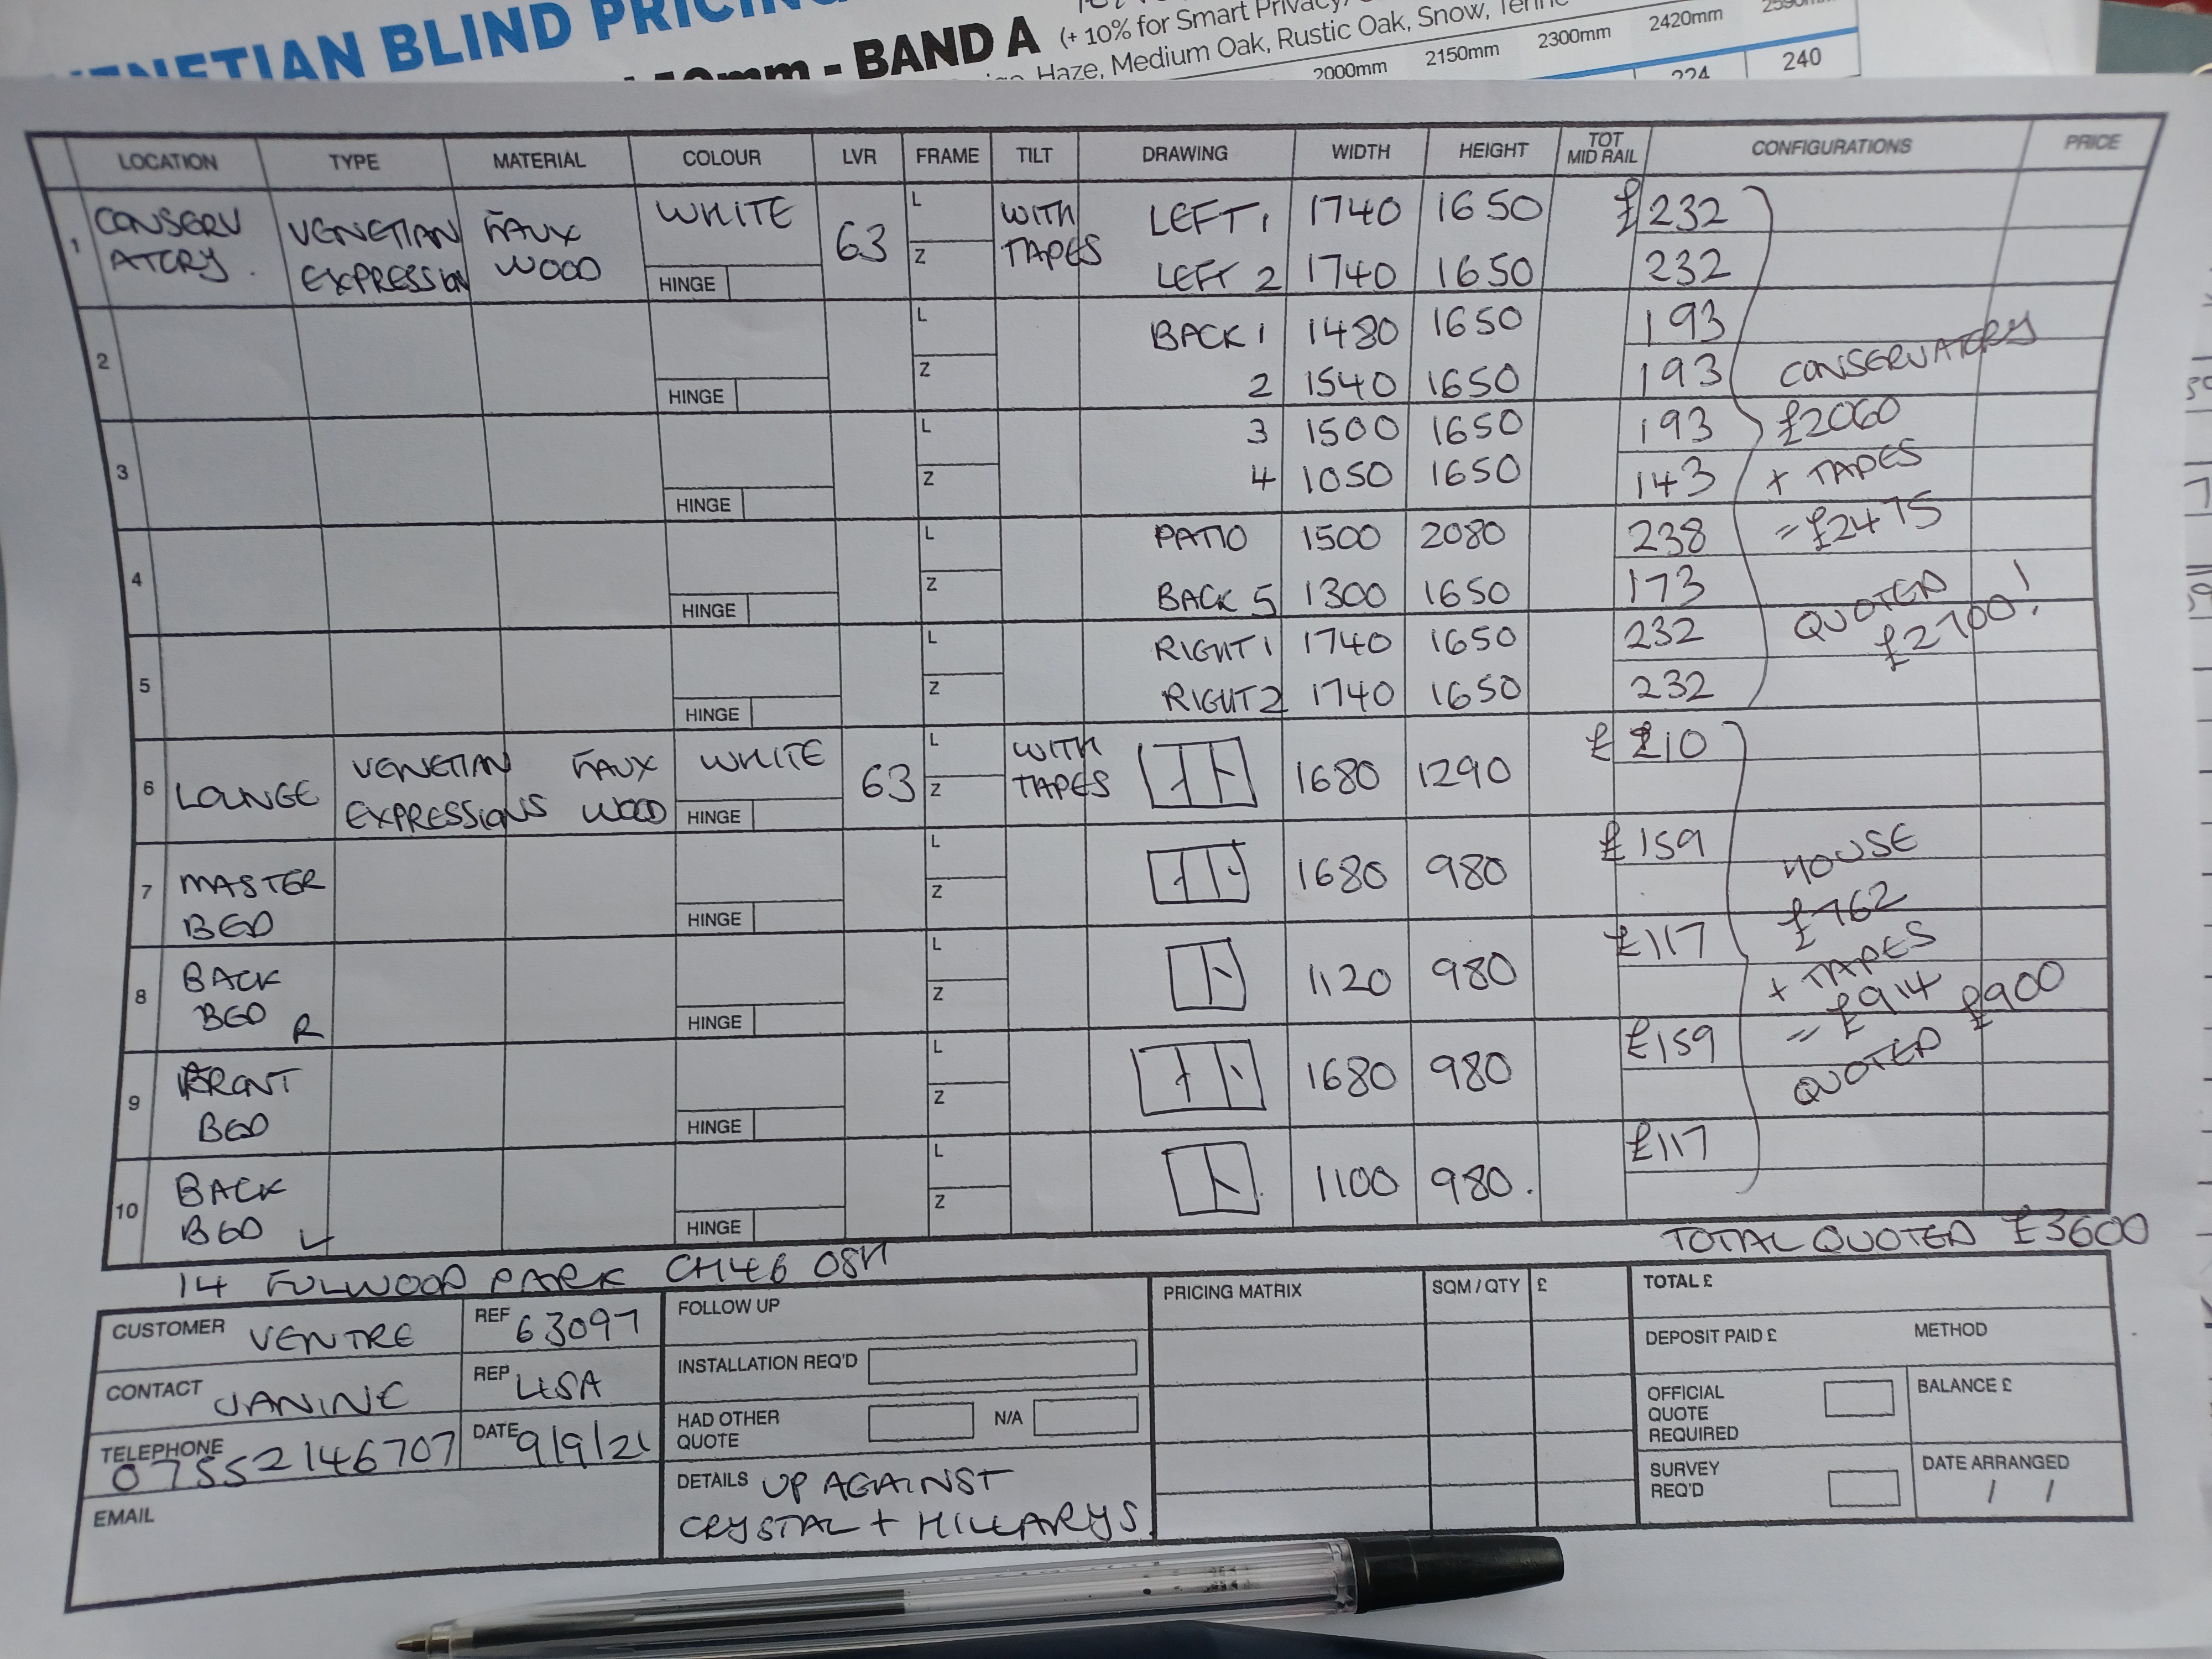 VENETIAN BLIND PRICING
50mm - BAND A (+ 10% for Smart Privacy
Haze, Medium Oak, Rustic Oak, Snow,
2000mm 2150mm 2300mm 2420mm
224 240
LOCATION TYPE MATERIAL COLOUR LVR FRAME TILT DRAWING WIDTH HEIGHT TOT MID RAIL CONFIGURATIONS PRICE
1 CONSERV VENETIAN FAUX WHITE 63 L WITH LEFT 1 1740 1650 £232
ATORY. EXPRESSION WOOD HINGE Z TAPES LEFT 2 1740 1650 232
2 L BACK 1 1480 1650 193
HINGE Z 2 1540 1650 193 CONSERVATORY
3 L 3 1500 1650 193 £2060
HINGE Z 4 1050 1650 143 + TAPES
4 L PATIO 1500 2080 238 = £2475
HINGE Z BACK 5 1300 1650 173 QUOTED
5 L RIGHT 1 1740 1650 232 £2700!
HINGE Z RIGHT 2 1740 1650 232
6 LOUNGE VENETIAN FAUX WHITE 63 L WITH 1680 1290 £210
EXPRESSIONS WOOD HINGE Z TAPES
7 MASTER L 1680 980 £159 HOUSE
BED HINGE Z £762
8 BACK L 1120 980 £117 + TAPES
BED R HINGE Z = £914
9 FRONT L 1680 980 £159 QUOTED £900
BED HINGE Z
10 BACK L 1100 980. £117
BED L HINGE Z
TOTAL QUOTED £3600
14 FULWOOD PARK CH46 0SH
CUSTOMER VENTRE REF 63097
CONTACT JANINE REP LISA
TELEPHONE 07552146707 DATE 9/9/21
EMAIL
FOLLOW UP
INSTALLATION REQ'D
HAD OTHER QUOTE N/A
DETAILS UP AGAINST
CRYSTAL + HILLARYS.
PRICING MATRIX SQM / QTY £
TOTAL £
DEPOSIT PAID £ METHOD
OFFICIAL QUOTE REQUIRED BALANCE £
SURVEY REQ'D DATE ARRANGED
/ /